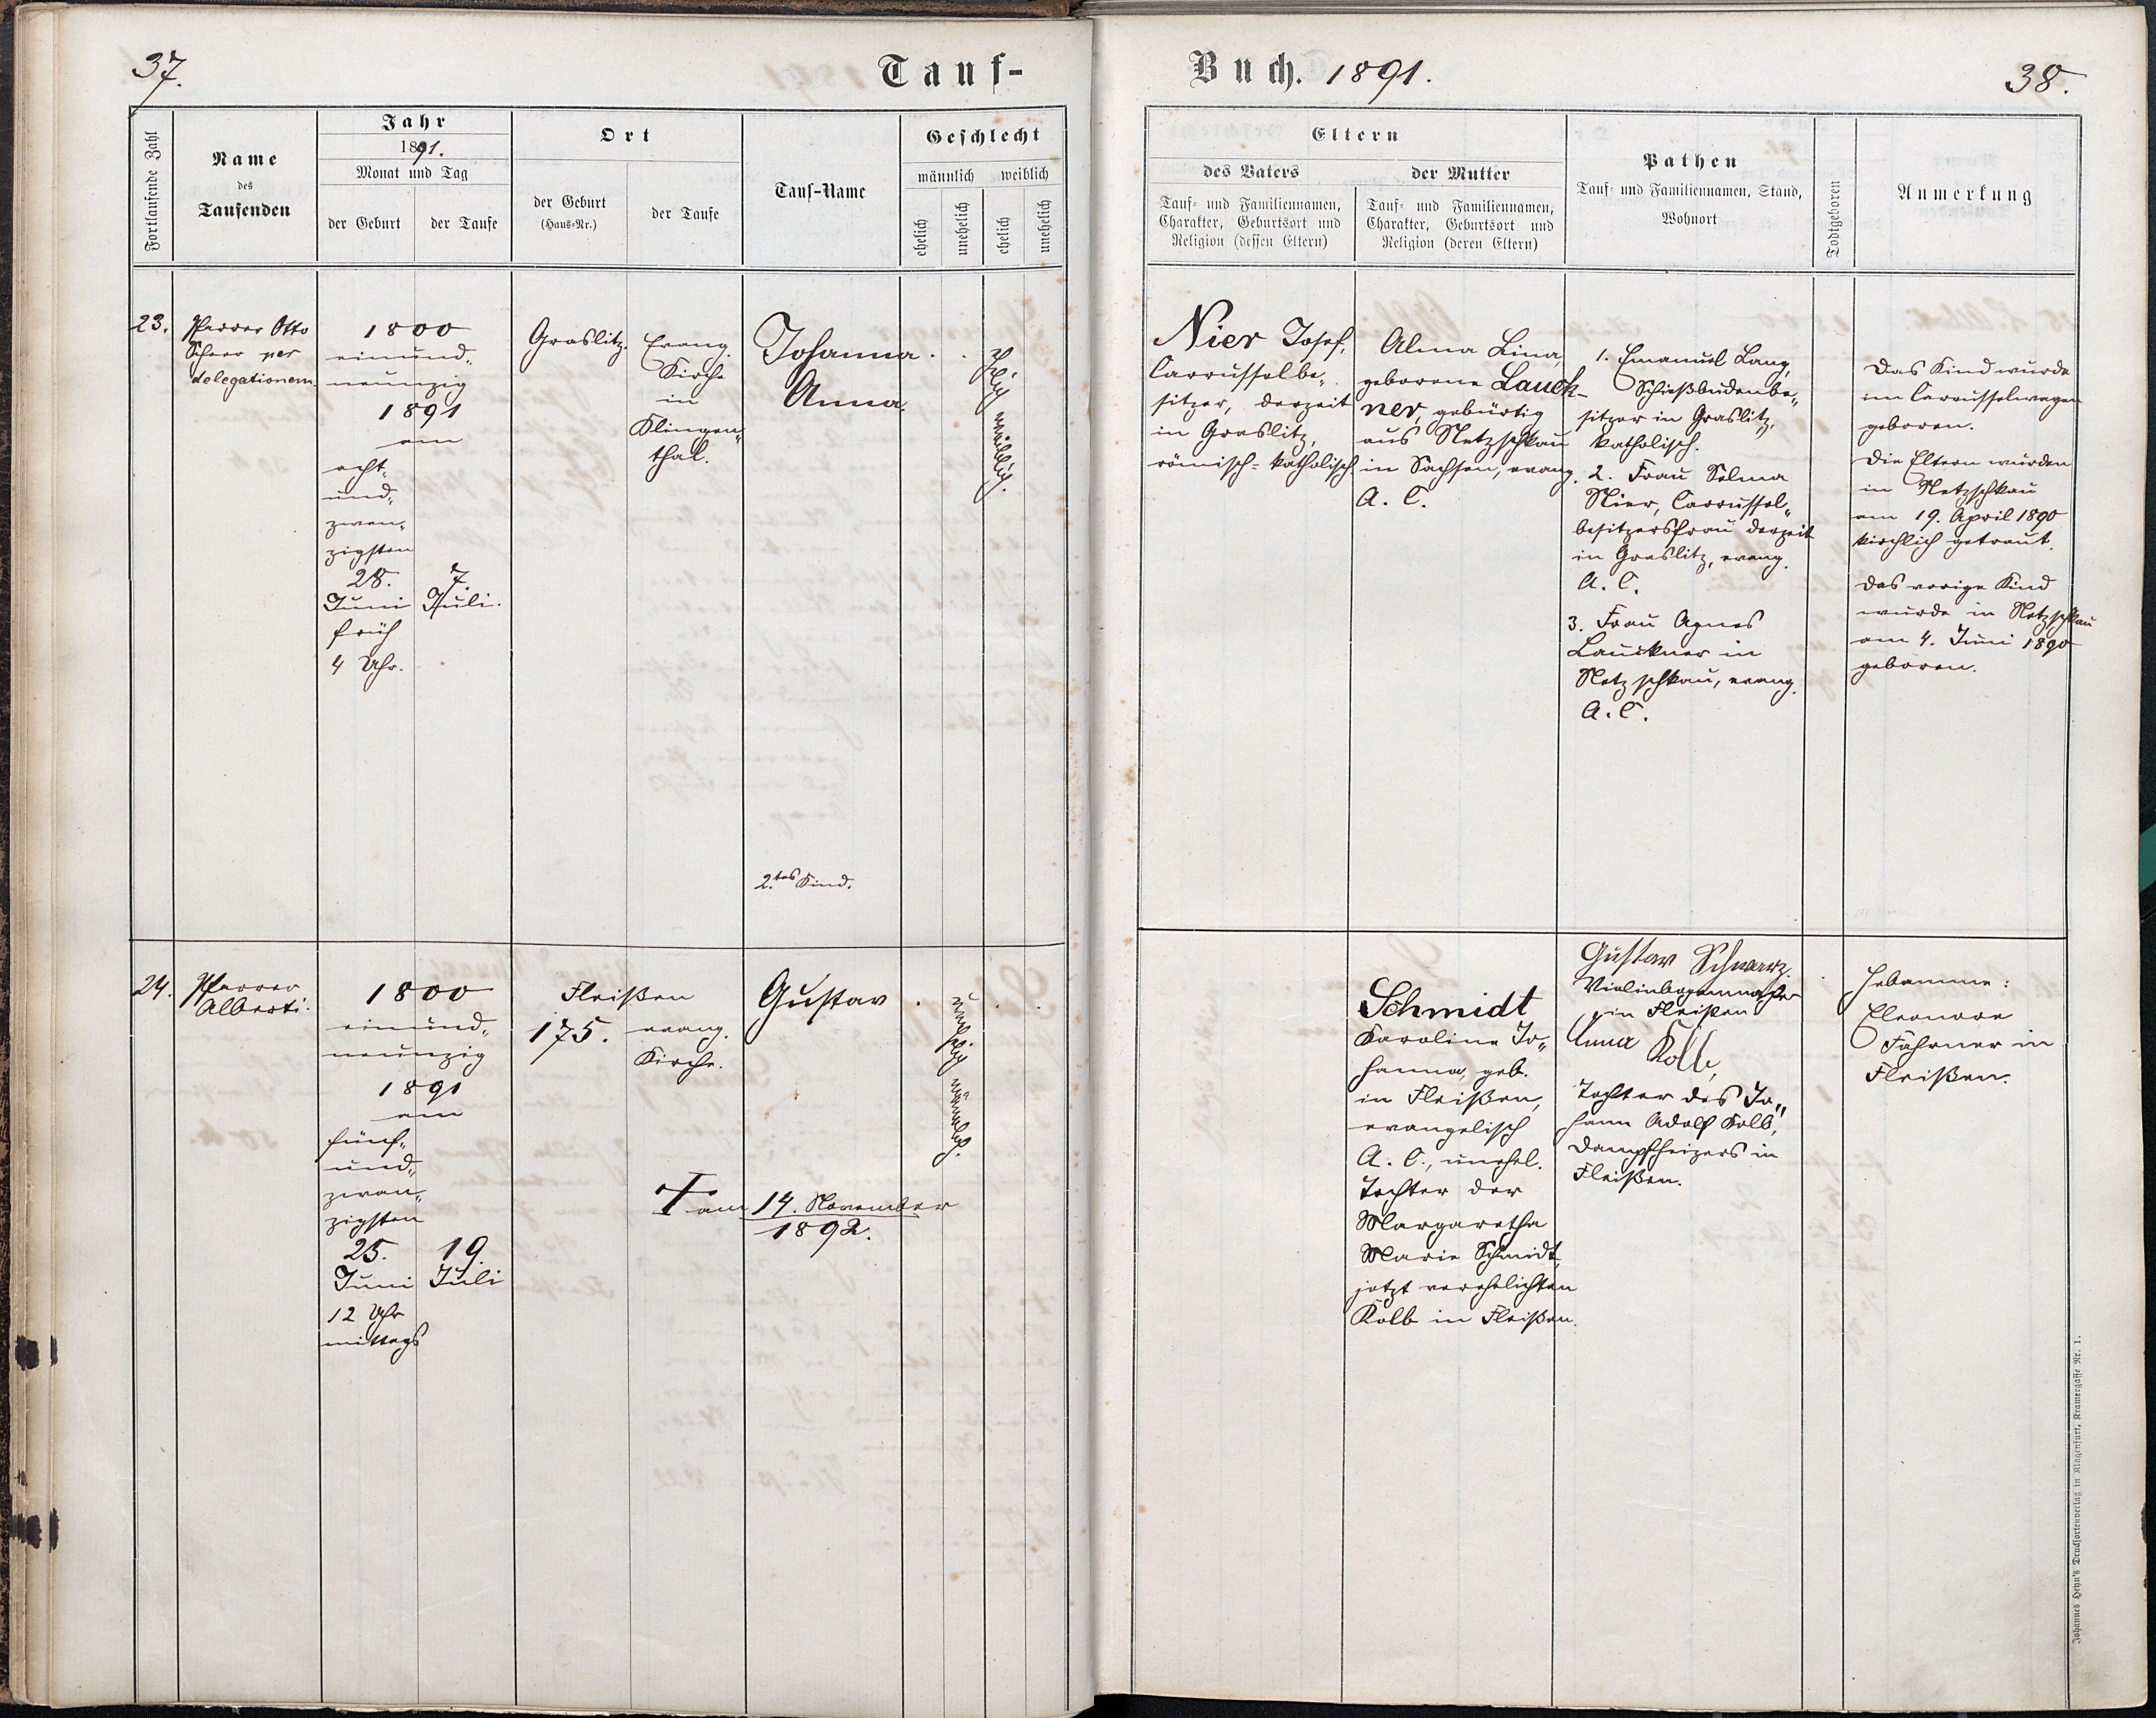 37.
Tauf-
Fortlaufende Zahl
Name
des
Taufenden
Jahr
1891.
Monat und Tag
der Geburt
der Taufe
Ort
der Geburt
(Haus-Nr.)
der Taufe
Tauf-Name
Geschlecht
männlich
weiblich
ehelich
unehelich
ehelich
unehelich
23.
Pfarrer Otto
Scheer per
delegationem
1800
einund-
neunzig
1891
am
acht-
und-
zwan-
zigsten
28.
Juni
früh
4 Uhr.
7.
Juli.
Graslitz.
Evang.
Kirche
in
Klingen-
thal.
Johanna
Anna.
ehelich weiblich.
2.tes Kind.
24.
Pfarrer
Alberti.
1800
einund-
neunzig
1891
am
fünf-
und-
zwan-
zigsten
25.
Juni
12 Uhr
mittags
19.
Juli
Fleißen
175.
evang.
Kirche.
Gustav
unehelich männlich.
† am 14. November
1892.
Buch. 1891.
38.
Eltern
des Vaters
Tauf- und Familiennamen,
Charakter, Geburtsort und
Religion (dessen Eltern)
der Mutter
Tauf- und Familiennamen,
Charakter, Geburtsort und
Religion (deren Eltern)
Pathen
Tauf- und Familiennamen, Stand,
Wohnort
Todtgeboren
Anmerkung
Nier Josef,
Carrusselbe-
sitzer, derzeit
in Graslitz,
römisch-katholisch
Alma Lina,
geborene Lauck-
ner, gebürtig
aus Netzschkau
in Sachsen, evang.
A. C.
1. Emanuel Lang,
Schießbudenbe-
sitzer in Graslitz,
katholisch.
2. Frau Selma
Nier, Carrussel-
besitzersfrau derzeit
in Graslitz, evang.
A. C.
3. Frau Agnes
Lauckner in
Netzschkau, evang.
A. C.
Das Kind wurde
im Carrusselwagen
geboren.
Die Eltern wurden
in Netzschkau
am 19. April 1890
kirchlich getraut.
Das vorige Kind
wurde in Netzschkau
am 4. Juni 1890
geboren.
Schmidt
Karoline Jo-
hanna, geb.
in Fleißen,
evangelisch
A. C., unehel.
Tochter der
Margaretha
Marie Schmidt,
jetzt verehelichten
Kolb in Fleißen.
Gustav Schwarz.
Violinbogenmacher
in Fleißen
Anna Kolb,
Tochter des Jo-
hann Adolf Kolb,
Dampfheizers in
Fleißen.
Hebamme:
Eleonore
Fahrner in
Fleißen.
Johannes Heyn's Drucksortenverlag in Klagenfurt, Kramergasse Nr. 1.